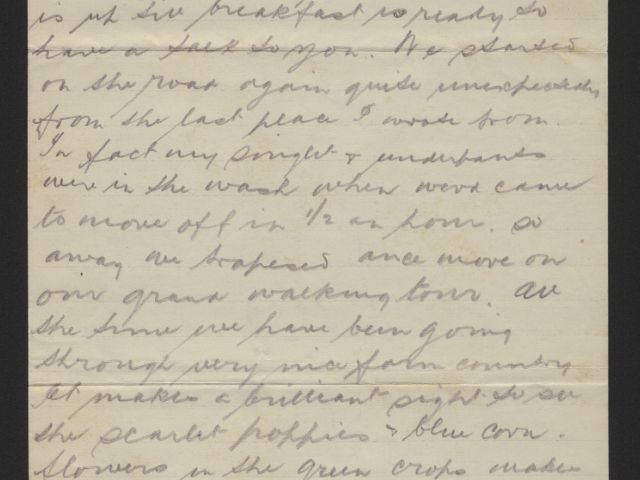 is up till breakfast is ready so
have a talk to you. We started
on the road again quite unexpectedly
from the last place I wrote from.
In fact my singlet & underpants
were in the wash when word came
to move off in 1/2 an hour. so
away we trapesed once more on
our grand walking tour. All
the time we have been going
through very nice farm country
It makes a brilliant sight to see
the scarlet poppies & blue corn.
flowers in the green crops makes